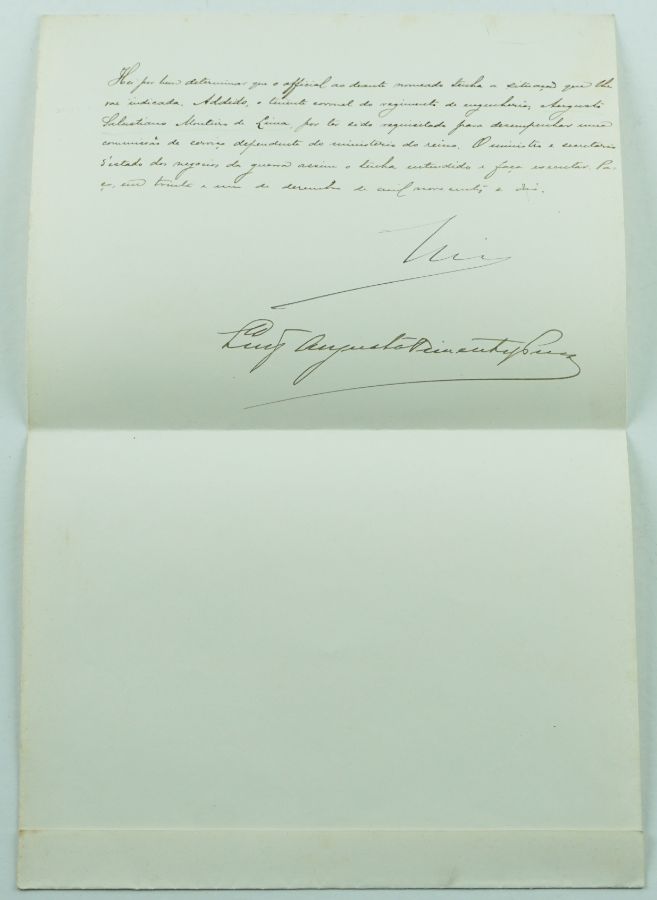 Hei por bem determinar que o official ao deante nomeado tenha a situação que lhe
vae indicada. Addido, o tenente coronel do regimento de engenheria, Augusto
Salustiano Monteiro de Lima, por ter sido requisitado para desempenhar uma
commissão de serviço dependente do ministerio do reino. O ministro e secretario
d'estado dos negocios da guerra assim o tenha entendido e faça executar. Pa-
ço, em trinta e um de dezembro de mil novecentos e dois.
Luiz Augusto Pimentel Pinto